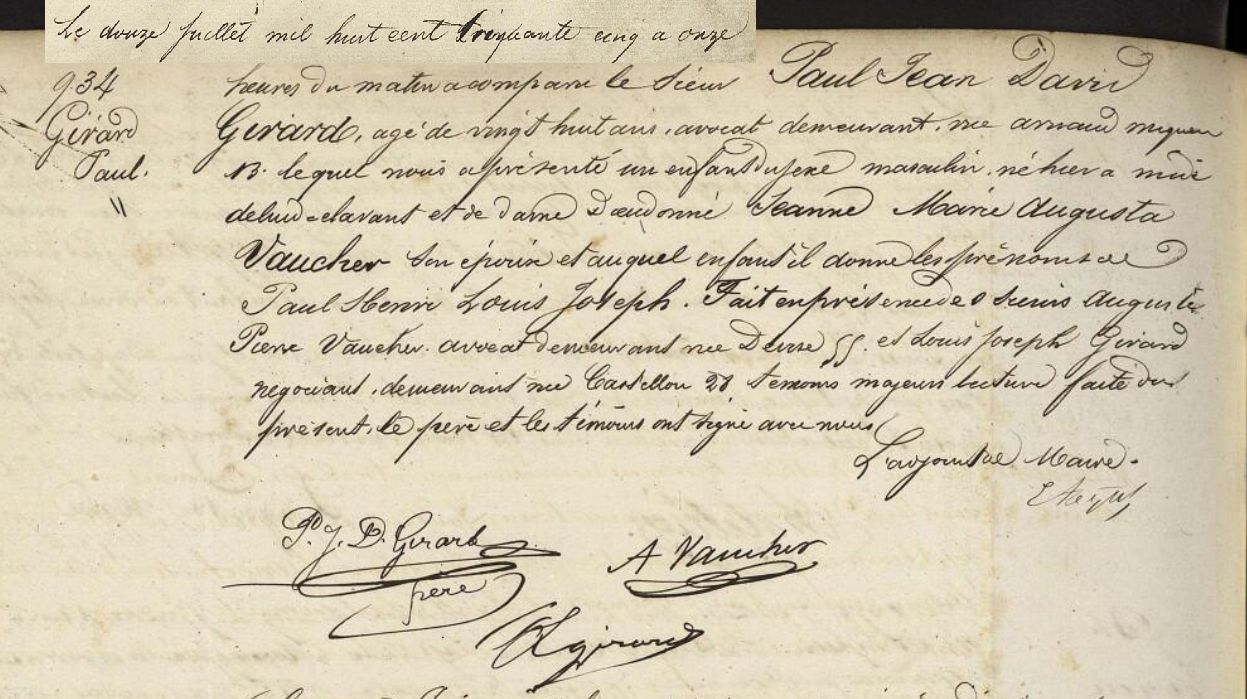 Le douze juillet mil huit cent cinquante cinq a onze
934
Girard
Paul.
heures du matin a comparu le Sieur Paul Jean David
Girard, agé de vingt huit ans, avocat demeurant, rue arnaud miqueu
13. lequel nous a présenté un enfant du sexe masculin, né hier a midi
de lui déclarant et de dame Dieudonné Jeanne Marie Augusta
Vaucher son épouse et auquel enfant il donne les prénoms de
Paul Henri Louis Joseph. Fait en présence des sieurs Auguste
Pierre Vaucher avocat demeurant rue Devise 55. et Louis Joseph Girard
négociant, demeurant rue Castillon 28 témoins majeurs lecture faite du
présent, le père et les témoins ont signé avec nous
L'adjoint de Maire.
P. J. D. Girard
père
A Vaucher
L girard